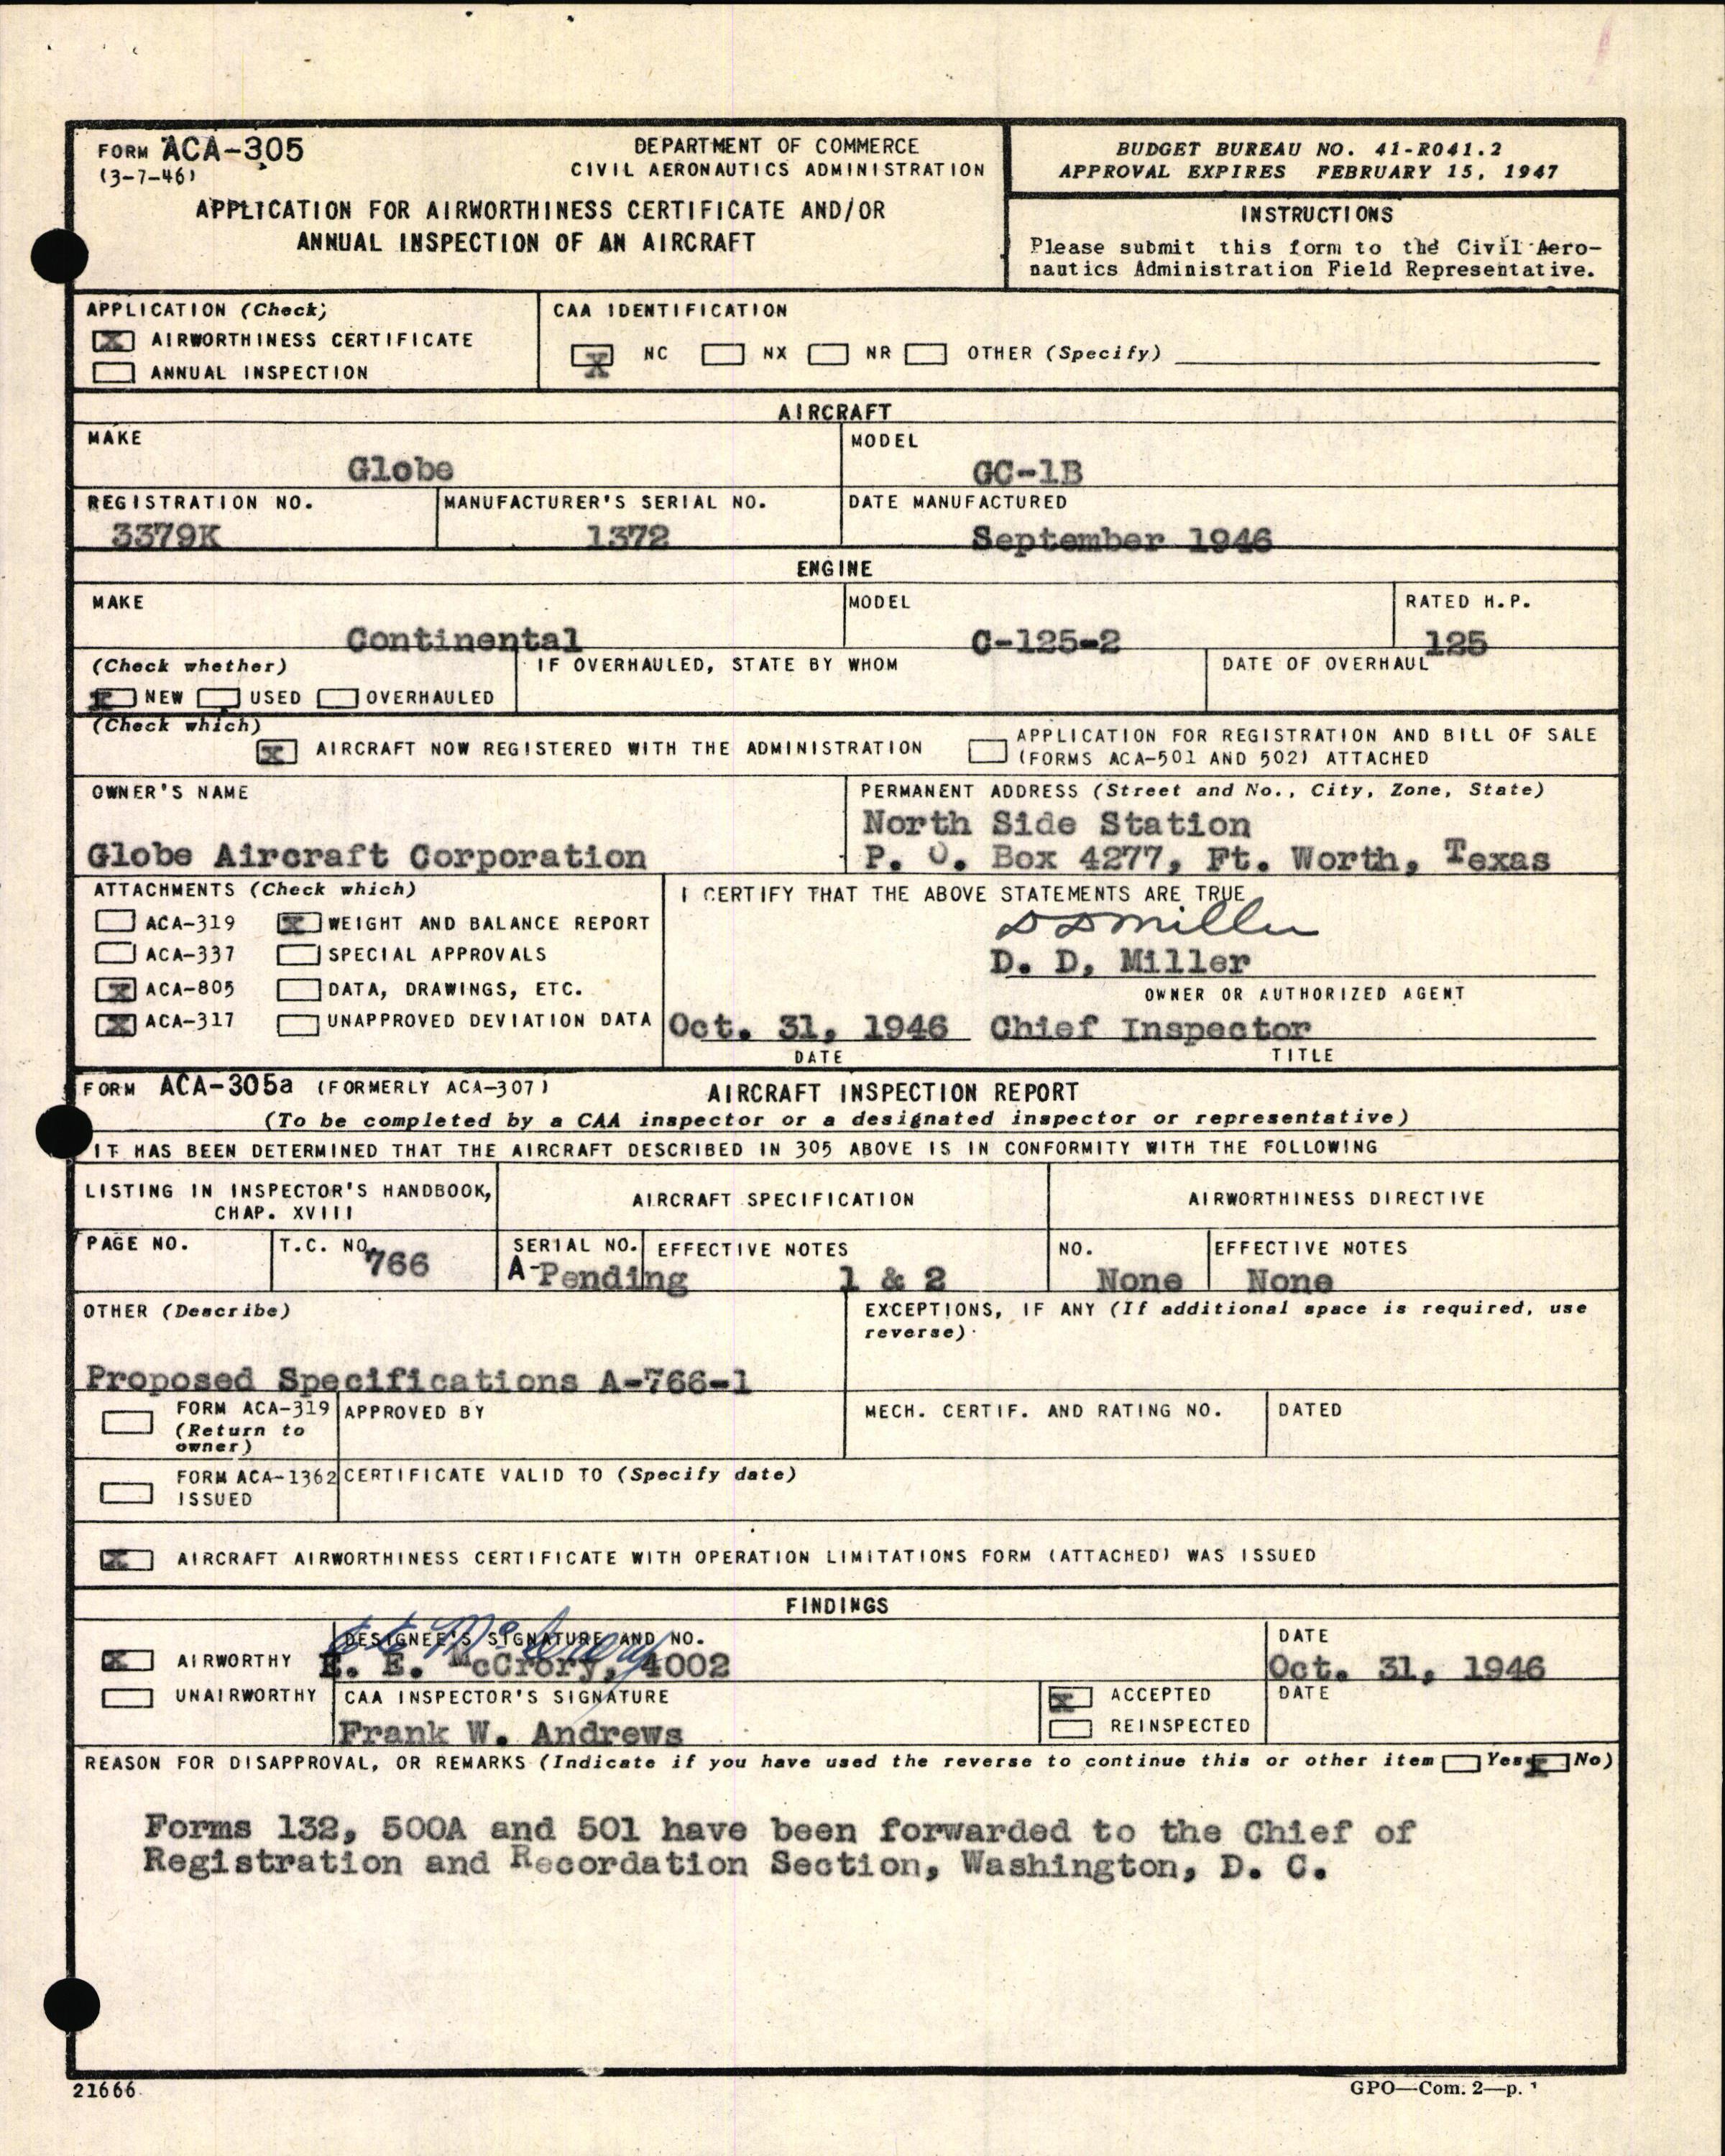 FORM ACA-305
(3-7-46)
DEPARTMENT OF COMMERCE
CIVIL AERONAUTICS ADMINISTRATION
APPLICATION FOR AIRWORTHINESS CERTIFICATE AND/OR
ANNUAL INSPECTION OF AN AIRCRAFT
BUDGET BUREAU NO. 41-R041.2
APPROVAL EXPIRES FEBRUARY 15, 1947
INSTRUCTIONS
Please submit this form to the Civil Aero-
nautics Administration Field Representative.
APPLICATION (Check)
X AIRWORTHINESS CERTIFICATE
ANNUAL INSPECTION
CAA IDENTIFICATION
X NC NX NR OTHER (Specify)
AIRCRAFT
MAKE
Globe
MODEL
GC-1B
REGISTRATION NO.
3379K
MANUFACTURER'S SERIAL NO.
1372
DATE MANUFACTURED
September 1946
ENGINE
MAKE
Continental
MODEL
C-125-2
RATED H.P.
125
(Check whether)
X NEW USED OVERHAULED
IF OVERHAULED, STATE BY WHOM
DATE OF OVERHAUL
(Check which)
X AIRCRAFT NOW REGISTERED WITH THE ADMINISTRATION
APPLICATION FOR REGISTRATION AND BILL OF SALE
(FORMS ACA-501 AND 502) ATTACHED
OWNER'S NAME
Globe Aircraft Corporation
PERMANENT ADDRESS (Street and No., City, Zone, State)
North Side Station
P. O. Box 4277, Ft. Worth, Texas
ATTACHMENTS (Check which)
ACA-319 X WEIGHT AND BALANCE REPORT
ACA-337 SPECIAL APPROVALS
X ACA-805 DATA, DRAWINGS, ETC.
X ACA-317 UNAPPROVED DEVIATION DATA
I CERTIFY THAT THE ABOVE STATEMENTS ARE TRUE
D D Miller
D. D. Miller
OWNER OR AUTHORIZED AGENT
Oct. 31, 1946 Chief Inspector
DATE TITLE
FORM ACA-305a (FORMERLY ACA-307) AIRCRAFT INSPECTION REPORT
(To be completed by a CAA inspector or a designated inspector or representative)
IT HAS BEEN DETERMINED THAT THE AIRCRAFT DESCRIBED IN 305 ABOVE IS IN CONFORMITY WITH THE FOLLOWING
LISTING IN INSPECTOR'S HANDBOOK,
CHAP. XVIII
AIRCRAFT SPECIFICATION
AIRWORTHINESS DIRECTIVE
PAGE NO.
T.C. NO.
766
SERIAL NO.
A-Pending
EFFECTIVE NOTES
1 & 2
NO.
None
EFFECTIVE NOTES
None
OTHER (Describe)
Proposed Specifications A-766-1
EXCEPTIONS, IF ANY (If additional space is required, use
reverse)
FORM ACA-319
(Return to
owner)
APPROVED BY
MECH. CERTIF. AND RATING NO.
DATED
FORM ACA-1362
ISSUED
CERTIFICATE VALID TO (Specify date)
X AIRCRAFT AIRWORTHINESS CERTIFICATE WITH OPERATION LIMITATIONS FORM (ATTACHED) WAS ISSUED
FINDINGS
X AIRWORTHY
UNAIRWORTHY
DESIGNEE'S SIGNATURE AND NO.
E E McCrory
E. E. McCrory, 4002
DATE
Oct. 31, 1946
CAA INSPECTOR'S SIGNATURE
Frank W. Andrews
X ACCEPTED
REINSPECTED
DATE
REASON FOR DISAPPROVAL, OR REMARKS (Indicate if you have used the reverse to continue this or other item Yes X No)
Forms 132, 500A and 501 have been forwarded to the Chief of
Registration and Recordation Section, Washington, D. C.
21666
GPO—Com. 2—p.